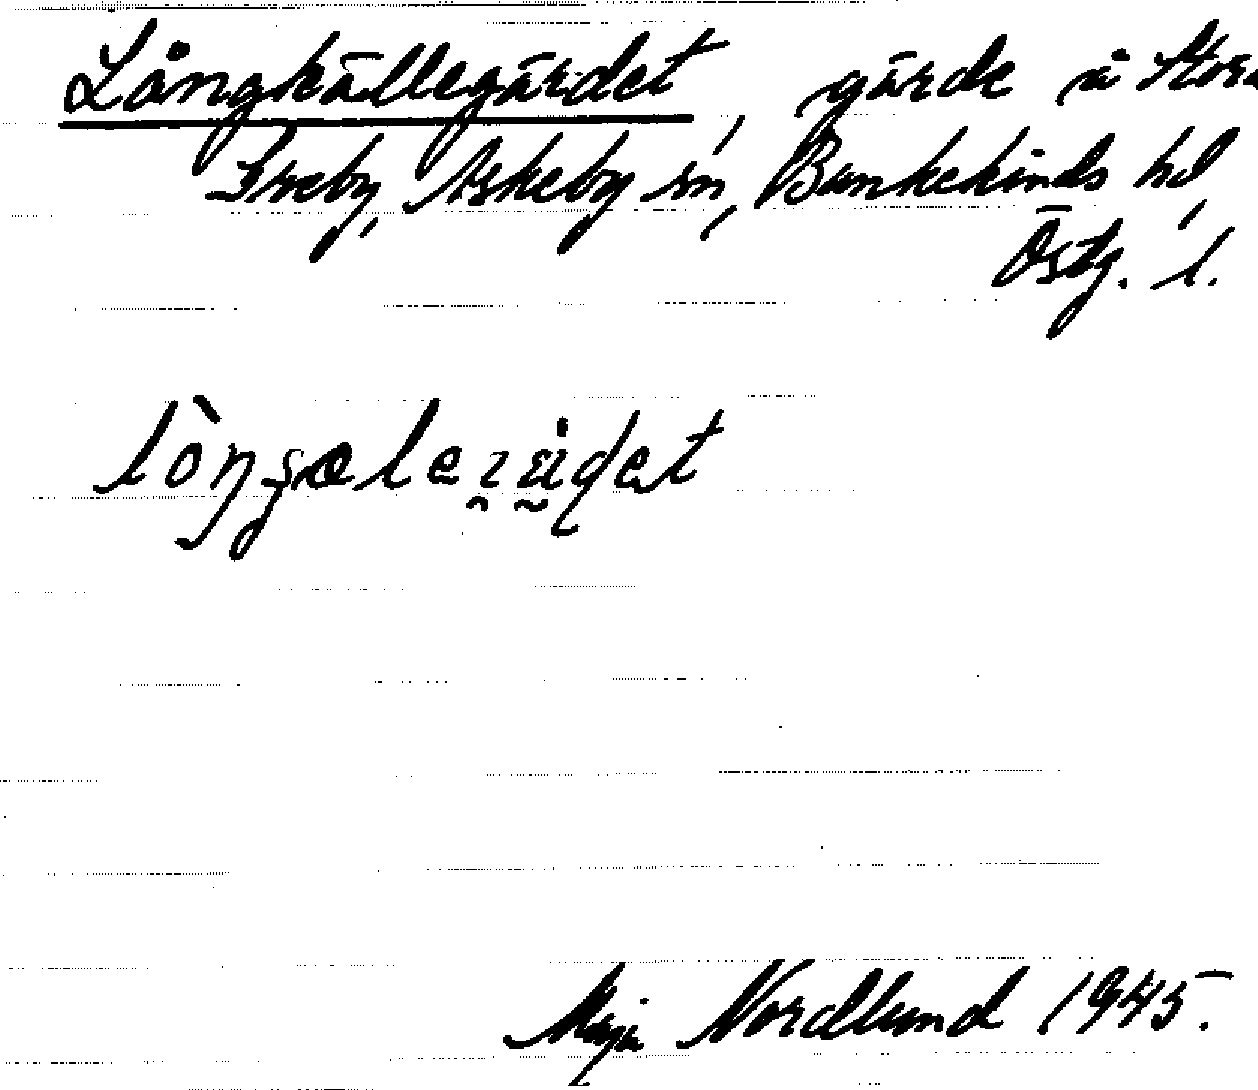 Långkällegärdet, gärde å Stora
Greby, Askeby sn, Bankekinds hd,
Östg. l.
Maja Nordlund 1945.